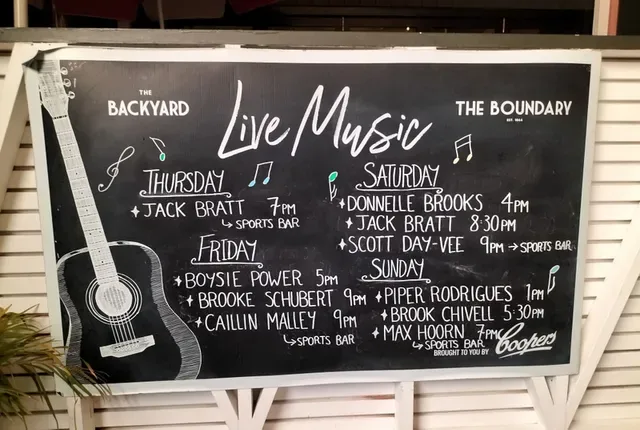 THE
BACKYARD
Live Music
THE BOUNDARY
EST. 1864
THURSDAY
JACK BRATT 7PM
SPORTS BAR
FRIDAY
BOYSIE POWER 5PM
BROOKE SCHUBERT 9PM
CAILLIN MALLEY 9PM
SPORTS BAR
SATURDAY
DONNELLE BROOKS 4PM
JACK BRATT 8:30PM
SCOTT DAY-VEE 9PM → SPORTS BAR
SUNDAY
PIPER RODRIGUES 1PM
BROOK CHIVELL 5:30PM
MAX HOORN 7PM
SPORTS BAR
BROUGHT TO YOU BY Coopers